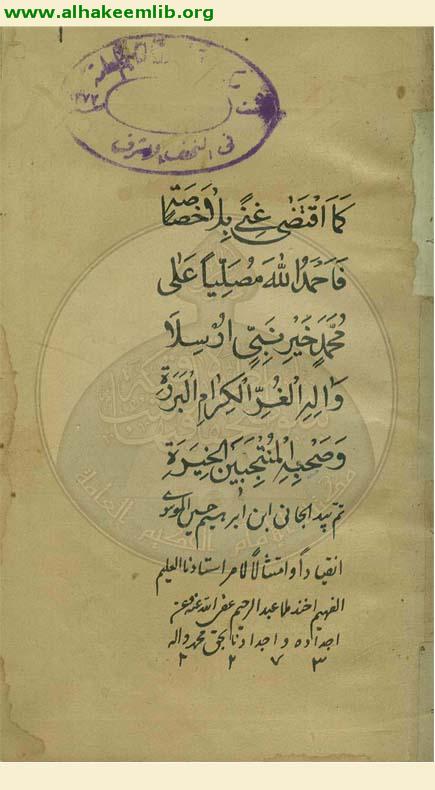 www.alhakeemlib.org
٢٧٧
في النجف الاشرف
كَمَا اقْتَضٰى غِنًى بِلَا خَصَاصَةٍ
فَاَحْمَدُ اللّٰهَ مُصَلِّيًا عَلٰى
مُحَمَّدٍ خَيْرِ نَبِيٍّ اُرْسِلَا
وَاٰلِهِ الْغُرِّ الْكِرَامِ الْبَرَرَةِ
وَصَحْبِهِ الْمُنْتَجَبِيْنَ الْخِيَرَةِ
تم بيد الجاني ابن ابرهيم حسين الموسوي
انقياداً وامتثالاً لامر استادنا العليم
الفهيم اخند ملا عبد الرحيم غفر الله عنه وعن
اجداده و اجدادنا بحق محمد واله